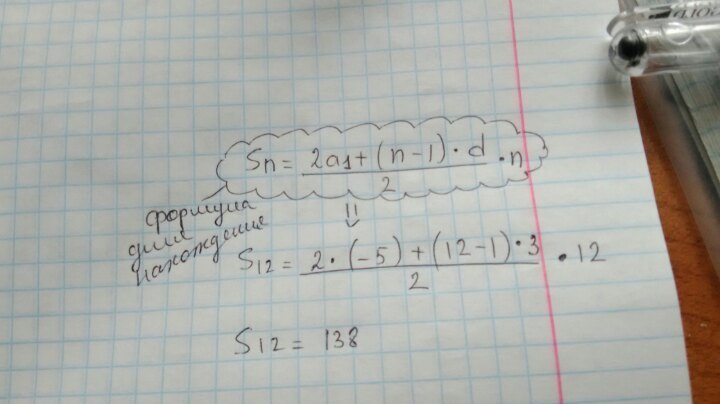 Sn = (2a1 + (n - 1) · d) / 2 · n
формула
для
нахождение
S12 = (2 · (-5) + (12 - 1) · 3) / 2 · 12
S12 = 138